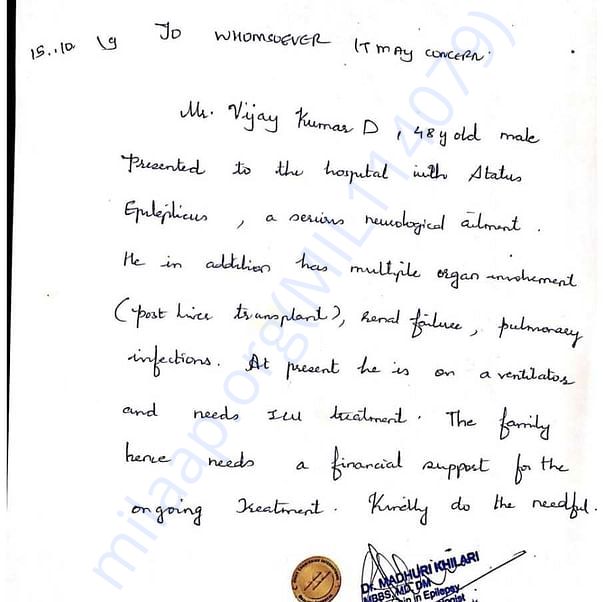 15..10 19 TO WHOMSOEVER IT MAY CONCERN.
Mr. Vijay Kumar D, 48 y old male
Presented to the hospital with Status
Epilepticus, a serious neurological ailment.
He in addition has multiple organ involvement
(post liver transplant), renal failure, pulmonary
infections. At present he is on a ventilator
and needs ICU treatment. The family
hence needs a financial support for the
ongoing treatment. Kindly do the needful.
Dr. MADHURI KHILARI
MBBS, MD, DM
in Epilepsy
milaap.org(MIL114079)